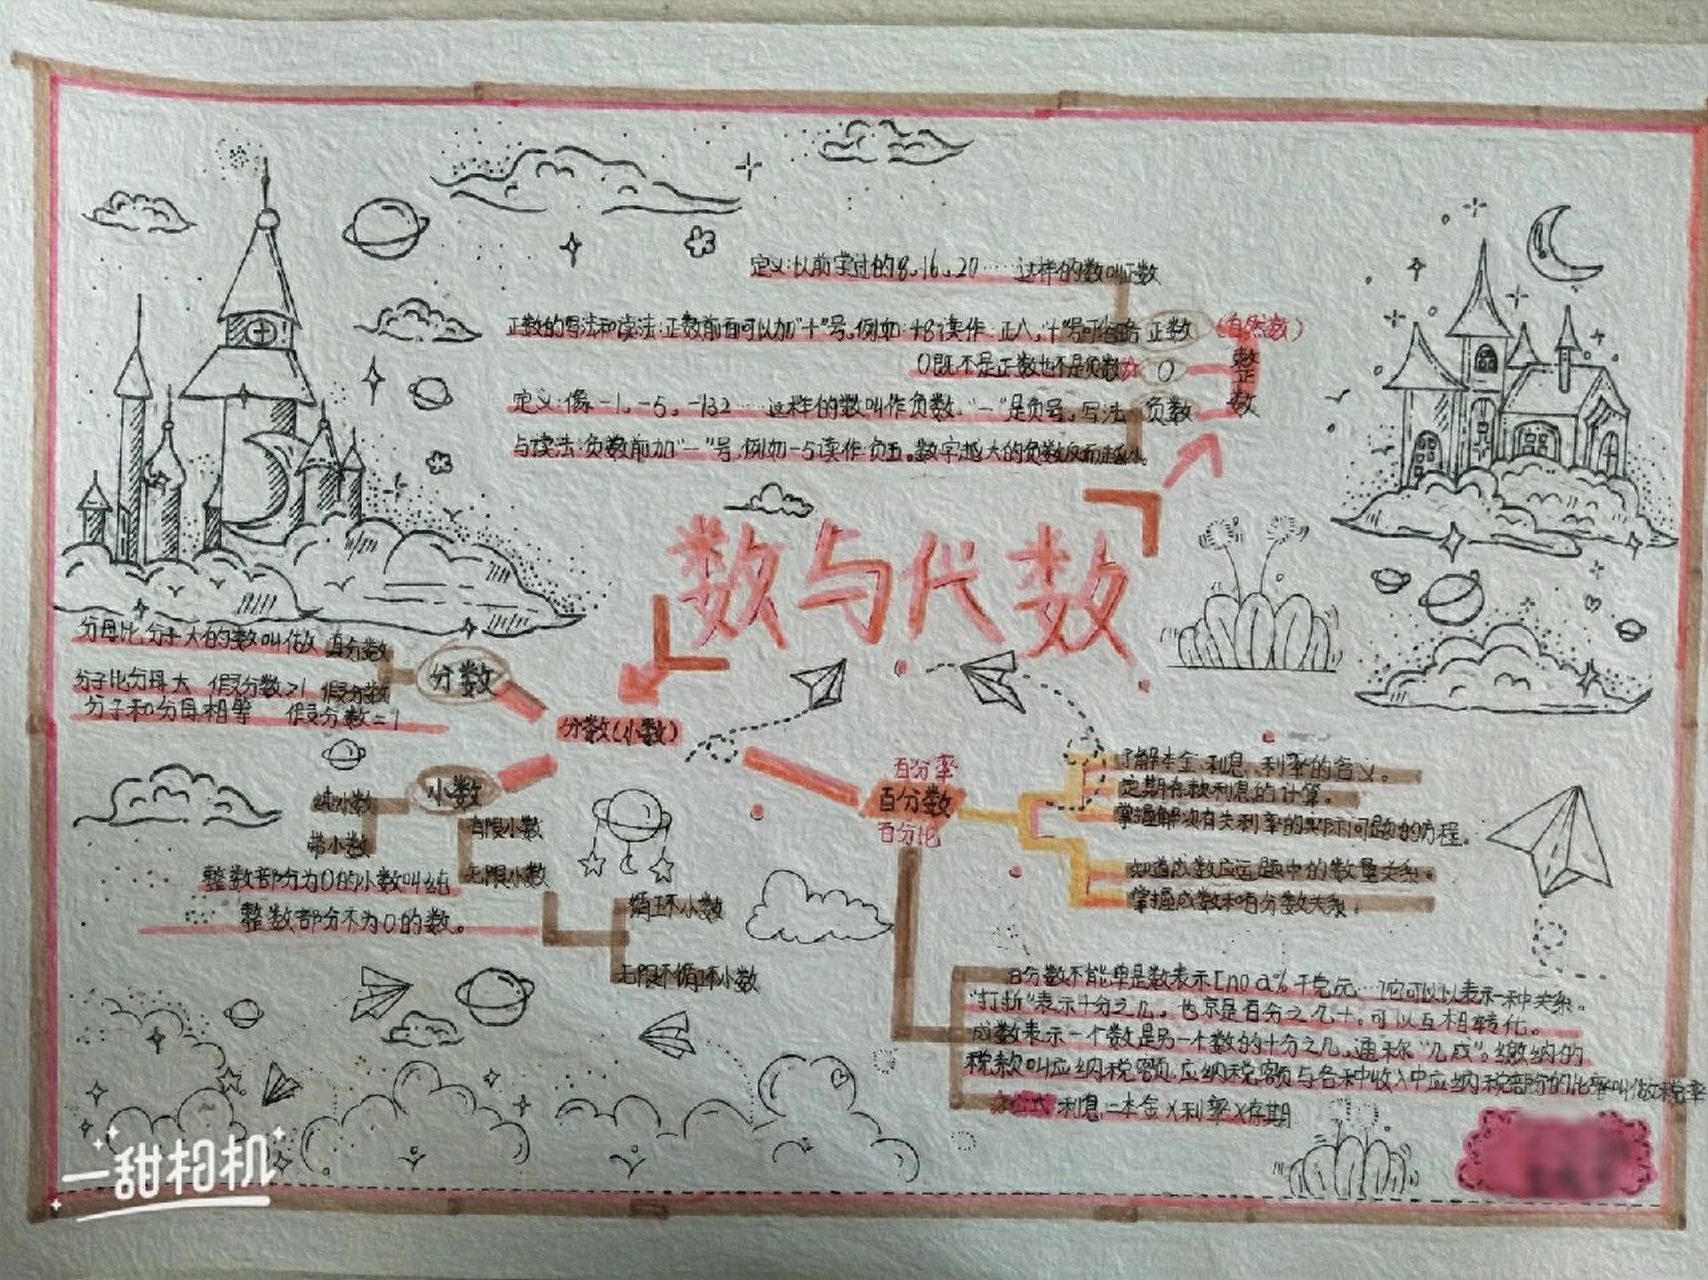 定义:以前学过的8、16、20……这样的数叫正数
正数的写法和读法:正数前面可以加"+"号,例如:+8读作:正八,"+"号可省略 正数 (自然数)
0既不是正数也不是负数 0
整正数
定义:像-1、-5、-132……这样的数叫作负数,"-"是负号。写法 负数
与读法:负数前加"-"号,例如-5读作:负五。数字越大的负数反而越小。
数与代数
分母比分子大的数叫做 真分数
分子比分母大 假分数>1 假分数
分子和分母相等 假分数=1
分数
分数(小数)
小数
纯小数
带小数
有限小数
无限小数
整数部分为0的小数叫纯
整数部分不为0的数。
循环小数
无限不循环小数
百分率
百分数
百分比
了解本金、利息、利率的含义。
定期存款利息的计算。
掌握解决有关利率的实际问题的方程。
知道成数应运题中的数量关系。
掌握成数和百分数关系。
百分数不能单是数表示[no a%千克元…它可以以表示一种关系。
"打折"表示十分之几。也京是百分之几十。可以互相转化。
成数表示一个数是另一个数的十分之几,通称"几成"。缴纳的
税款叫应纳税额,应纳税额与各种收入中应纳税部分的比率叫做税率
公式 利息=本金×利率×存期
一甜相机